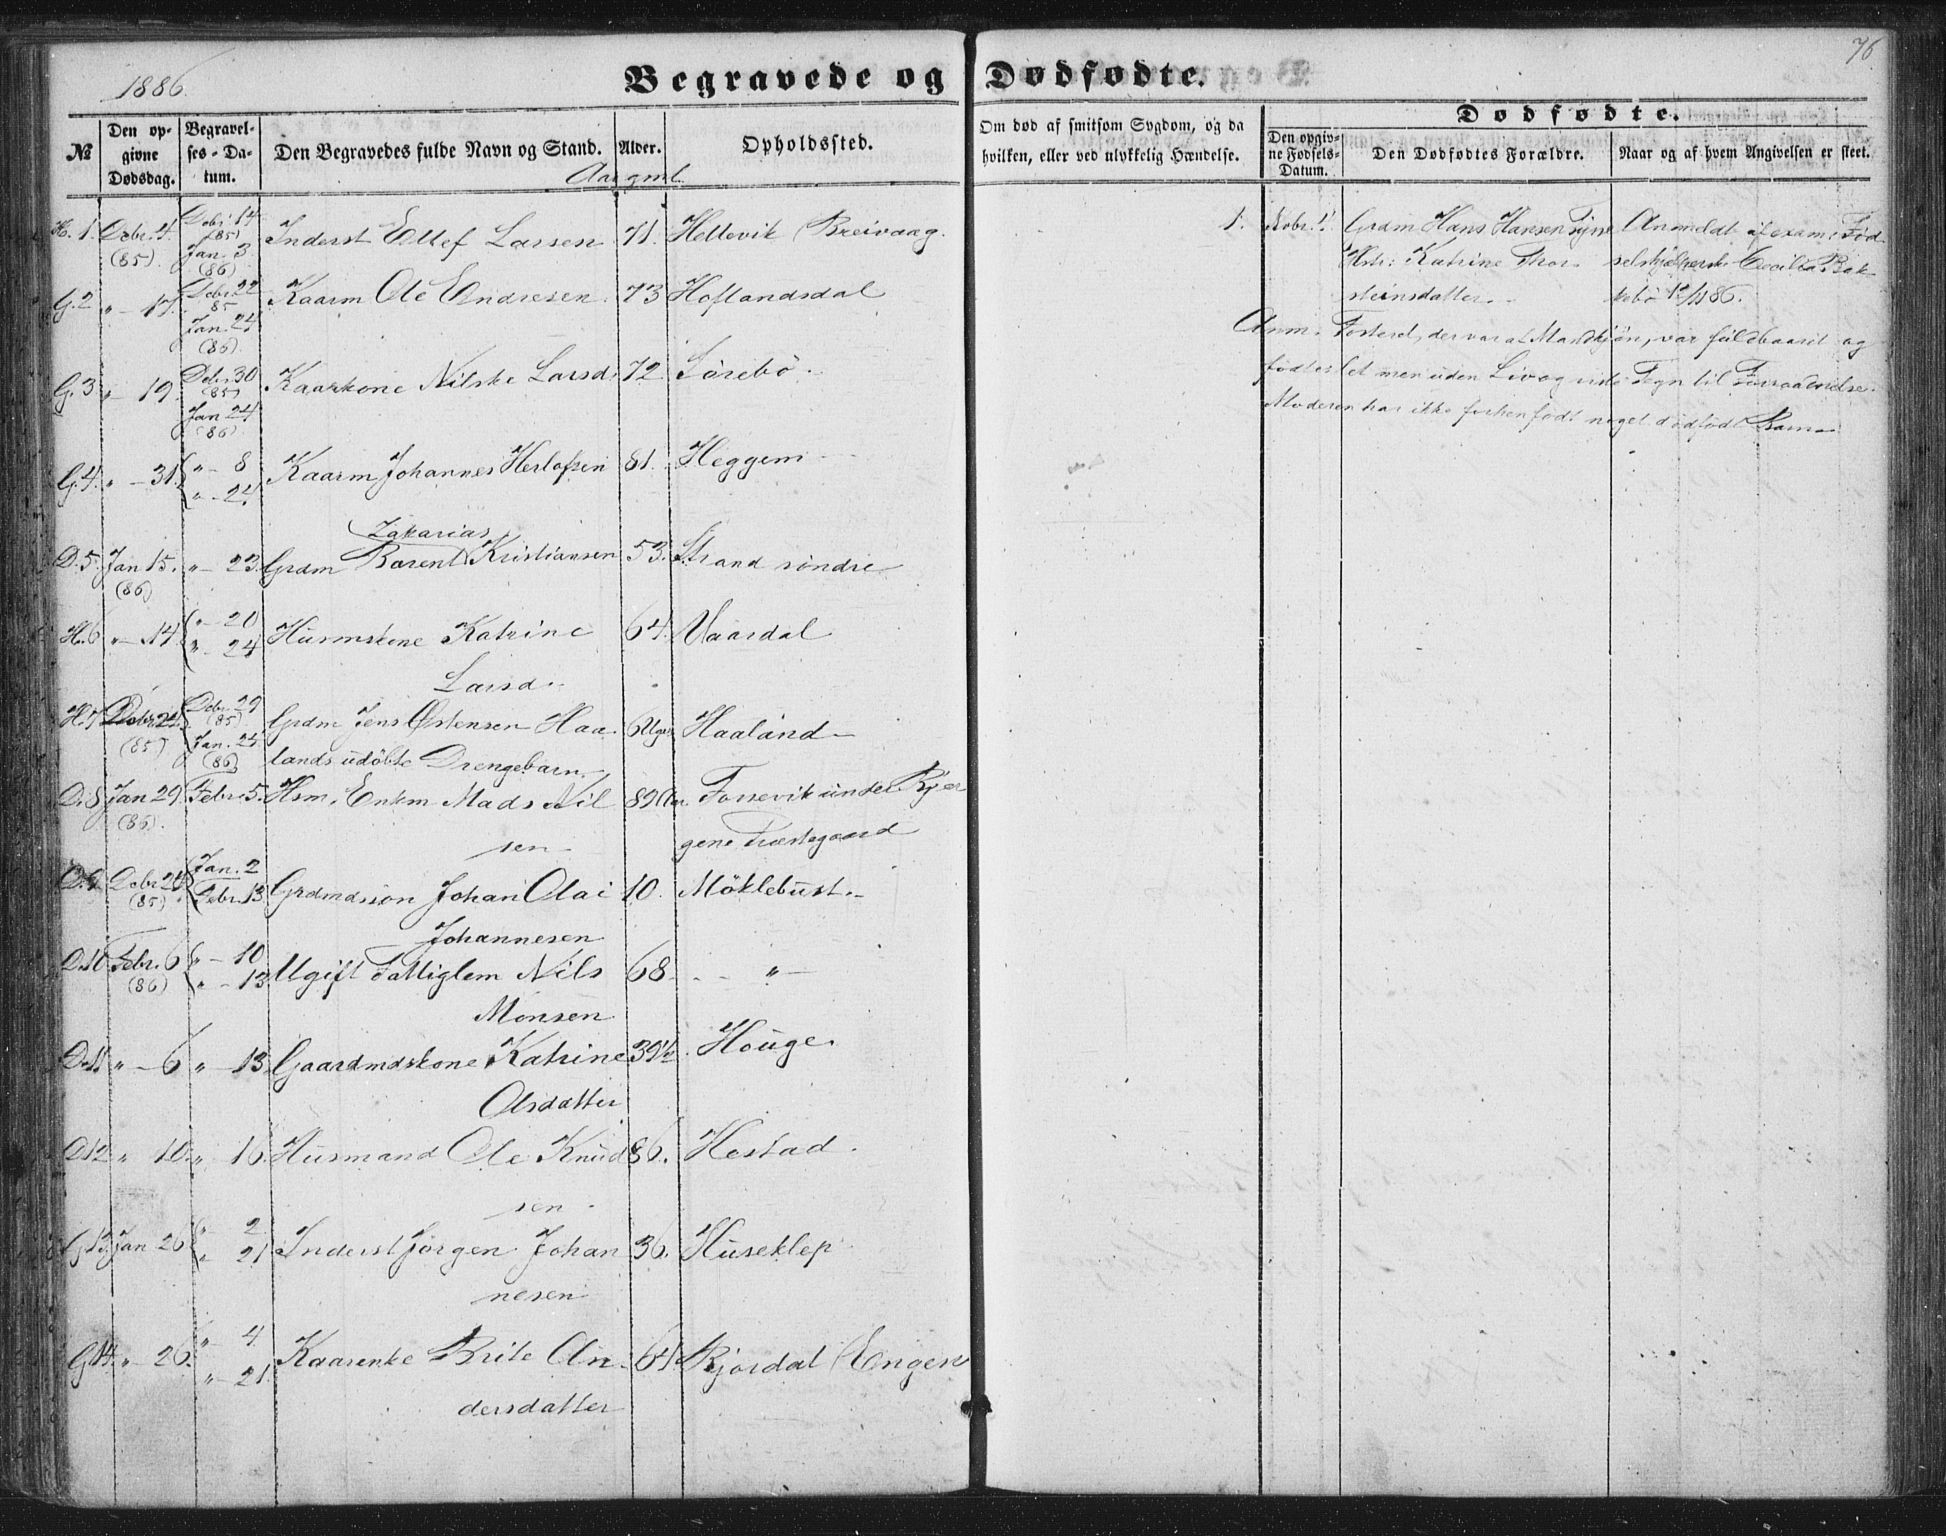 76
1886.
Begravede og Dødfødte.
№
Den opgivne Dødsdag.
Begravelses-Datum.
Den Begravedes fulde Navn og Stand.
Alder.
Opholdssted.
Om død af smitsom Sygdom, og da hvilken, eller ved ulykkelig Hændelse.
Dødfødte.
Den opgivne Fødsels-Datum.
Den Dødfødtes Forældre.
Naar og af hvem Angivelsen er skeet.
Aar gml.
H. 1. Debr. 4. (85) Debr 14 (85) Jan. 3 (86) Inderst Ellef Larsen 71. Hellevik (Breivaag.
G. 2 " - 17. Debr. 22 85 Jan. 24 (86) Kaarm Ole Endresen. 73 Hoflandsdal
G. 3 " - 19. Debr. 30 (85) Jan 24 (86) Kaarkone Nilske Larsd 72. Sörebö.
G. 4. " - 31. " - 8 " - 24. Kaarm Johannes Herlofsen 81. Heggem
Zakarias
D. 5. Jan 15. (86) " - 23. Grdm Barent Kristiansen 53. Strand söndre
H. 6 " - 14 " - 20 " - 24 Husmskone Katrine 64. Vaardal
Larsd.
H. 7 Debr. 24. (85) Debr 29 (85) Jan. 25 (86) Grdm Jens Östensen Haa 6 Uger Haaland
lands udöbte Drengebarn.
D. 8 Jan 29. (86). Febr. 5. Hsm. Enkm Mads Nil 89 Aar. Fossevik under Bjer
sen gene Præstegaard
D. 9 Debr 24 (85) Jan. 2 Febr. 13. Grdmdssön Johan Olai 10. Möklebust.
Johannesen
D. 10 Febr. 6 (86) " - 10 " - 13 Ugift Fattiglem Nils 68. - "
Monsen
D. 11 " - 6 " - 13. Gaardmdskone Katrine 39½. Houge.
Olsdatter
D. 12 " 10. " 16. Husmand Ole Knud 86. Hestad.
sen
G. 13. Jan 26 " 2 " 21. Inderst Jörgen Johan 36. Huseklep
nesen
G. 14. " - 26. " 4 " - 21. Kaarenke Brite An 64. Bjordal (Engen
dersdatter
1. Nobr. 1. Grdm Hans Hansen Tyne Anmeldt af exam: Fød
Hstr: Katrine Thor selshjelperske Cecilia Bak
steinsdatter. kebö 12/11 86.
Anm. Fosteret, der var af Mandkjön, var fuldbaaret og
födtes let men uden Liv og viste Tegn til Forraadnelse.
Moderen har ikke forhen födt noget dödfödt Barn